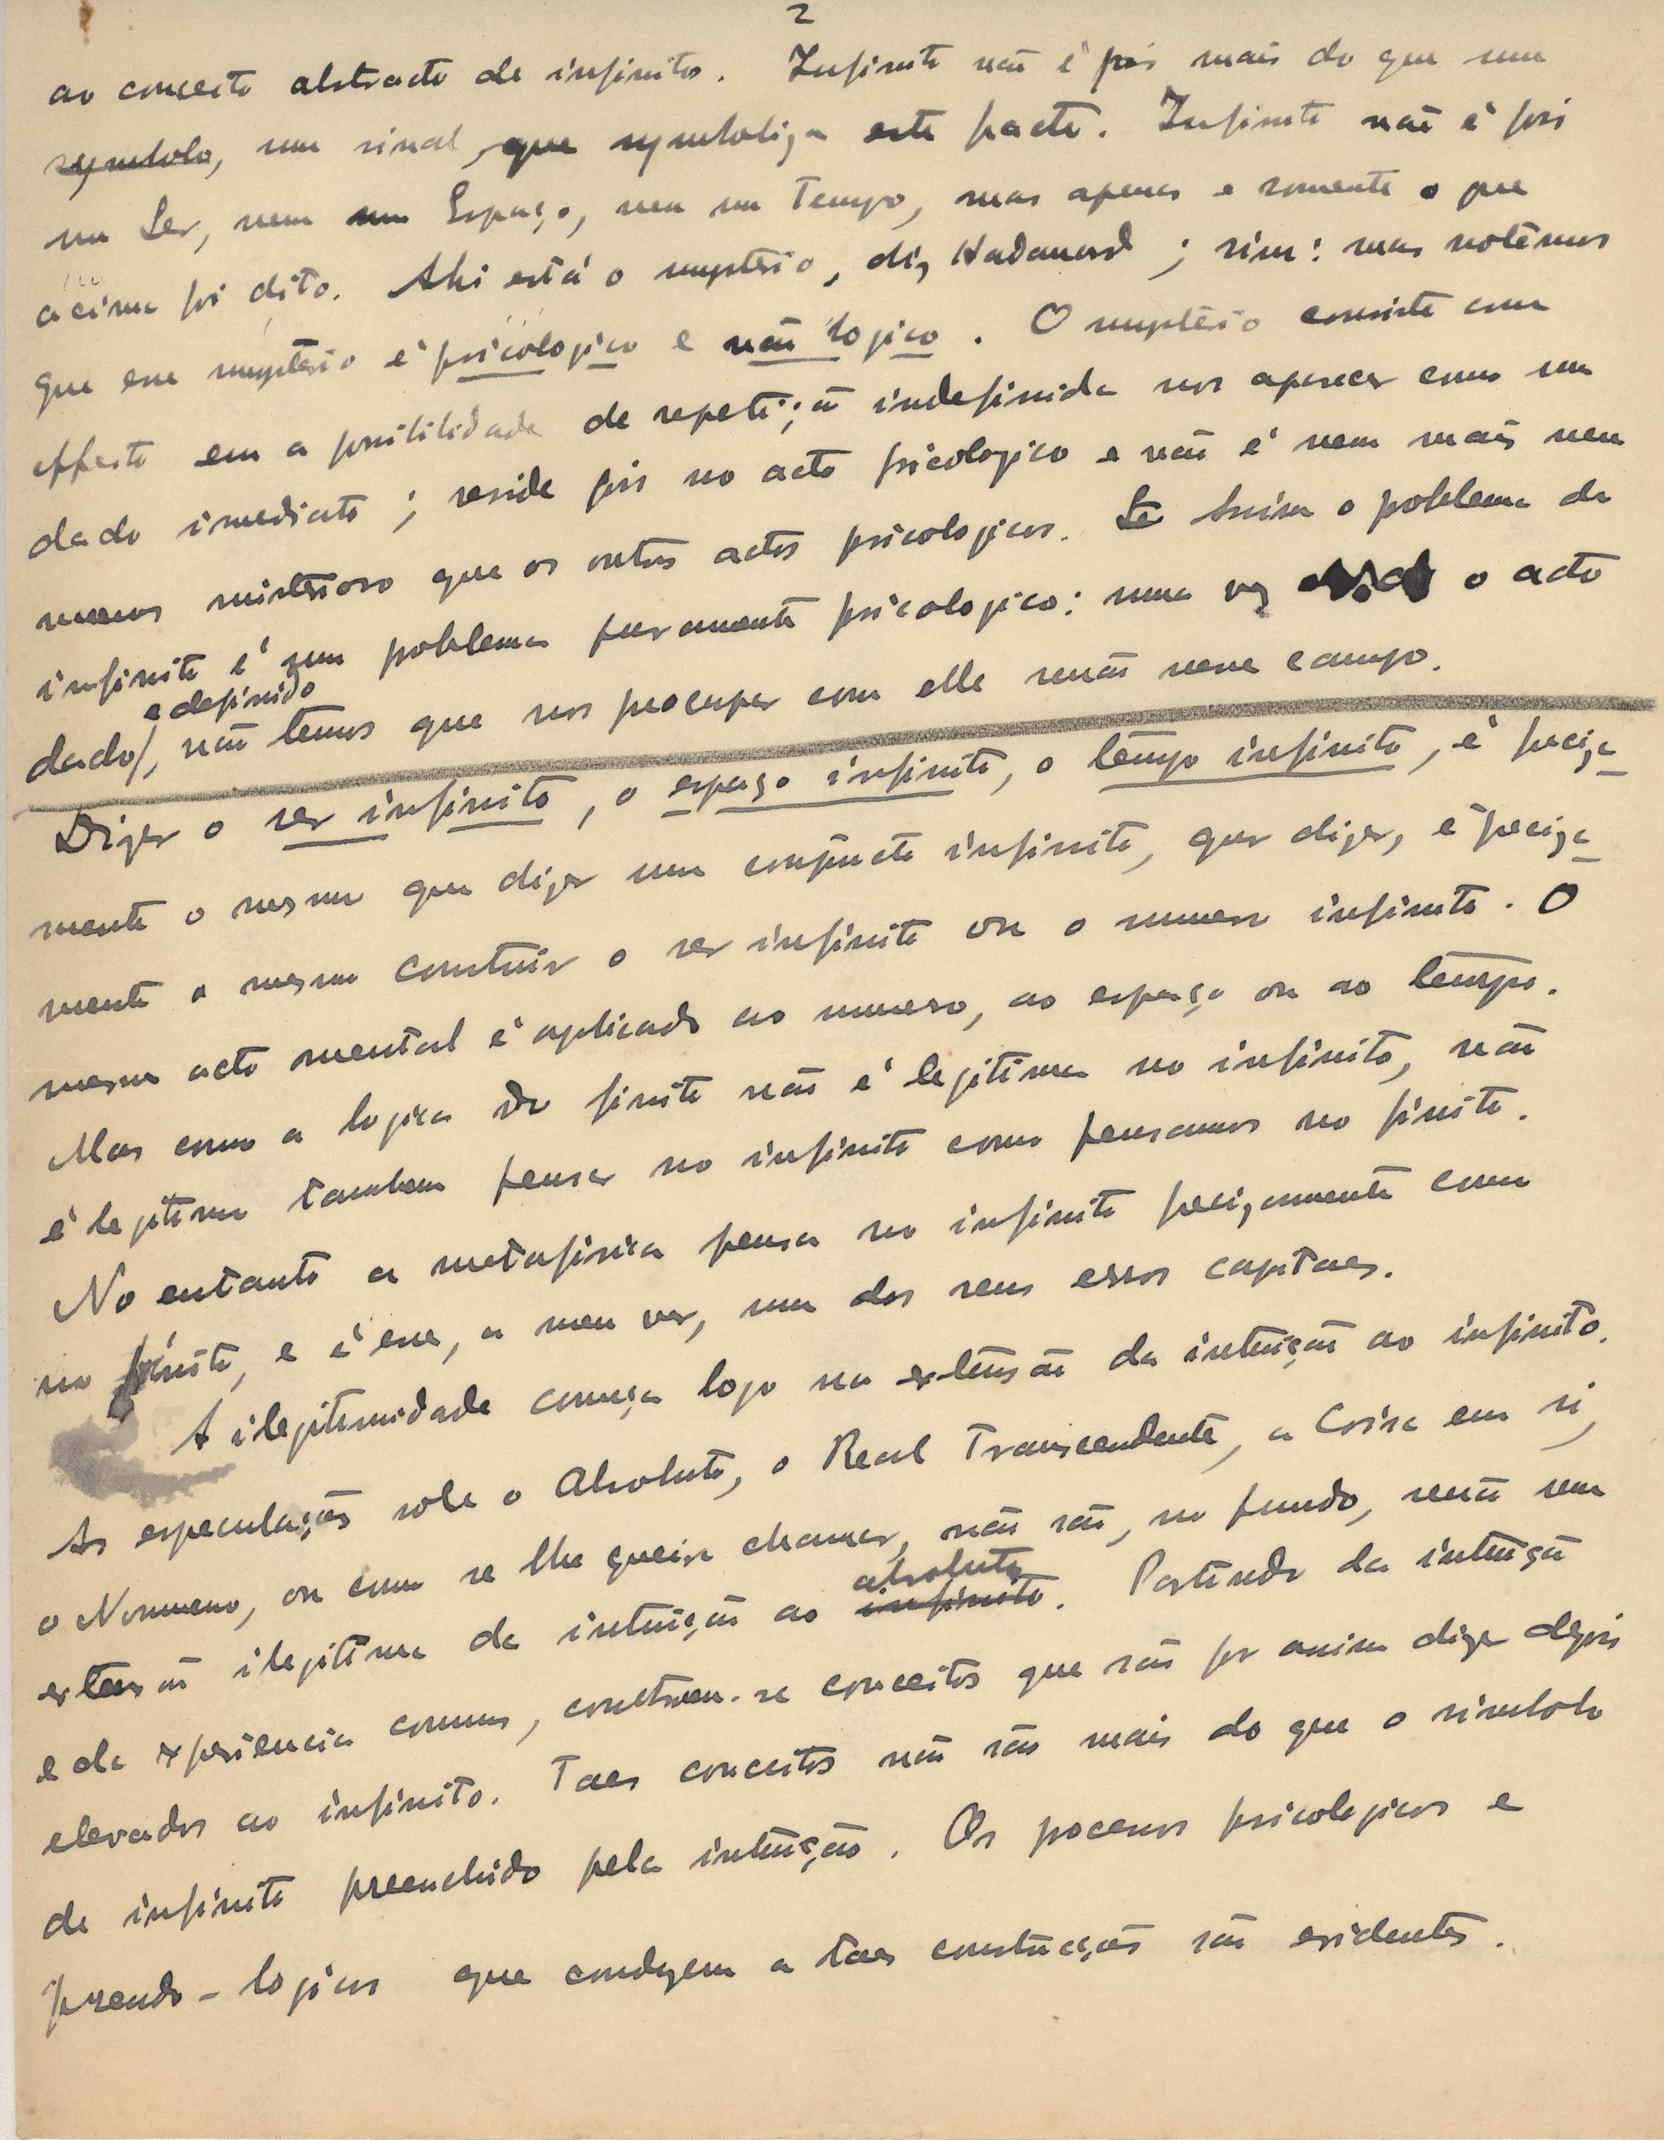 2
ao conceito abstracto de infinito. Infinito não é pois mais do que um
symbolo, um sinal, que symboliza este facto. Infinito não é pois
um Ser, nem um Espaço, nem um Tempo, mas apenas e somente o que
acima foi dito. Ahi está o mysterio, diz Hadamard; sim: mas notêmos
que esse mysterio é psicologico e não logico. O mysterio consiste com
effeito em a possibilidade de repetição indefinida nos aparecer como um
dado imediato; reside pois no acto psicologico e não é nem mais nem
menos misterioso que os outros actos psicologicos. Assim o problema do
infinito é um problema puramente psicologico: uma vez o acto
e definido
dado, não temos que nos preocupar com elle senão nesse campo.
Dizer o ser infinito, o espaço infinito, o tempo infinito, é preciza
mente o mesmo que dizer um conjuncto infinito, quer dizer, é preciza
mente o mesmo construir o ser infinito ou o numero infinito. O
mesmo acto mental é aplicado ao numero, ao espaço ou ao tempo.
Mas como a logica do finito não é legitima no infinito, não
é legitimo tambem pensar no infinito como pensamos no finito.
No entanto a metafisica pensa no infinito precizamente como
no finito, e é esse, a meu ver, um dos seus erros capitaes.
A ilegitimidade começa logo na extensão da intuição ao infinito.
As especulações sobre o Absoluto, o Real Transcendente, a Coisa em si,
o Noumeno, ou como se lhe queira chamar, não são, no fundo, senão uma
absoluto
extensão ilegitima da intuição ao infinito. Partindo da intuição
e da experiencia comum, constroem-se conceitos que são por assim dizer depois
elevados ao infinito. Taes conceitos não são mais do que o simbolo
de infinito preenchido pela intuição. Os processos psicologicos e
pseudo-logicos que conduzem a taes construcções são evidentes.